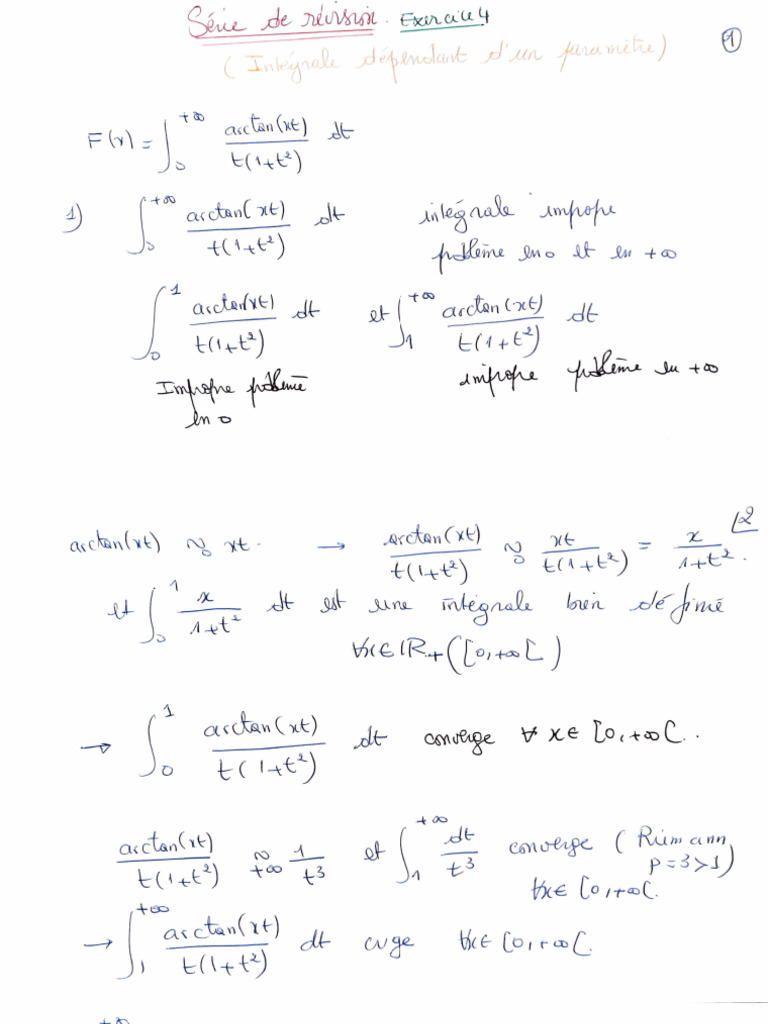 Série de révision. Exercice 4
(Intégrale dépendant d'un paramètre)
1
F(x) = ∫_0^{+∞} arctan(xt) / t(1+t²) dt
1) ∫_0^{+∞} arctan(xt) / t(1+t²) dt intégrale impope
problème en 0 et en +∞
∫_0^1 arctan(xt) / t(1+t²) dt et ∫_1^{+∞} arctan(xt) / t(1+t²) dt
Impropre problème en 0
impropre problème en +∞
2
arctan(xt) ~_0 xt. → arctan(xt) / t(1+t²) ~_0 xt / t(1+t²) = x / 1+t².
et ∫_0^1 x / 1+t² dt est une intégrale bien définie
∀x∈ℝ+ ([0,+∞[)
→ ∫_0^1 arctan(xt) / t(1+t²) dt converge ∀ x∈ [0,+∞[..
arctan(xt) / t(1+t²) ~_{+∞} 1 / t³ et ∫_1^{+∞} dt / t³ converge (Riemann p=3>1)
∀x∈ [0,+∞[.
→ ∫_1^{+∞} arctan(xt) / t(1+t²) dt cvge ∀x∈ [0,+∞[.
+∞